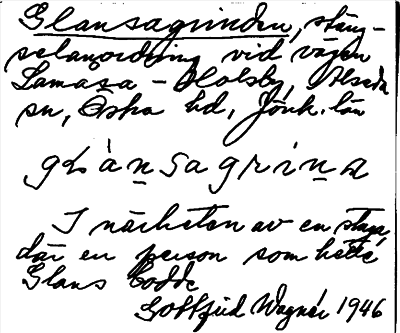 Glansagrinden, stäng-
selanordning vid vägen
Lamåsa - Holsby, Alseda
sn, Östra hd, Jönk. län
glànsagrina
I närheten av en stuga,
där en person som hette
Glans bodde
Gottfrid Wagnér 1946